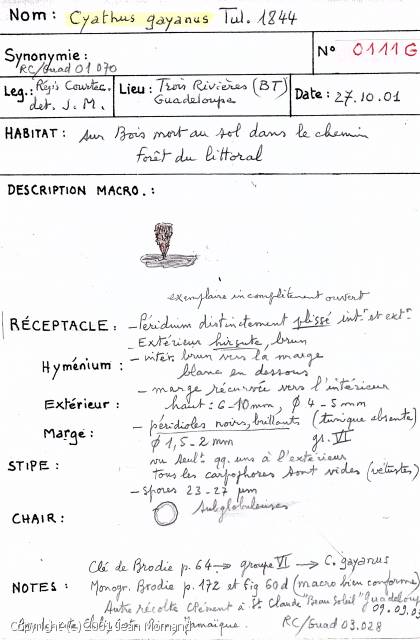 Nom : Cyathus gayanus Tul. 1844
Synonymie :
N° 0111G
RC/Guad 01 070
Leg. : Régis Courtec.
det. J. M.
Lieu : Trois Rivières (BT)
Guadeloupe
Date : 27.10.01
HABITAT : sur Bois mort au sol dans le chemin
Forêt du littoral
DESCRIPTION MACRO. :
exemplaire incomplètement ouvert
RÉCEPTACLE : - Péridium distinctement plissé intr et extr
- Extérieur hirsute, brun
Hyménium : - intér. brun vers la marge
blanc en dessous
- marge récurvée vers l'intérieur
Extérieur : haut : 6-10 mm, φ 4-5 mm
- péridioles noirs, brillants (tunique absente)
Marge : φ 1,5-2 mm gr. VI
STIPE : vu seult qq. uns à l'extérieur
Tous les carpophores sont vides (vétustes)
- Spores 23-27 µm
subglobuleuses
CHAIR :
Clé de Brodie p. 64 → groupe VI → C. gayanus
NOTES : Monogr. Brodie p. 172 et fig 60d (macro bien conforme)
Autre récolte Clément à St. Claude "Beau Soleil" Guadeloupe
09.09.03
Copyright (c) Jean Mornand
Jamaïque. RC/Guad 03.028